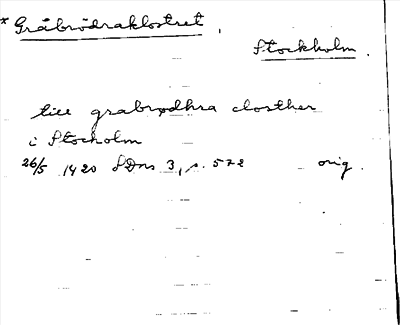 * Gråbrödraklostret,
Stockholm.
till grabrødhra closther
i Stocholm
26/5 1420 SDns 3, s. 572 orig.